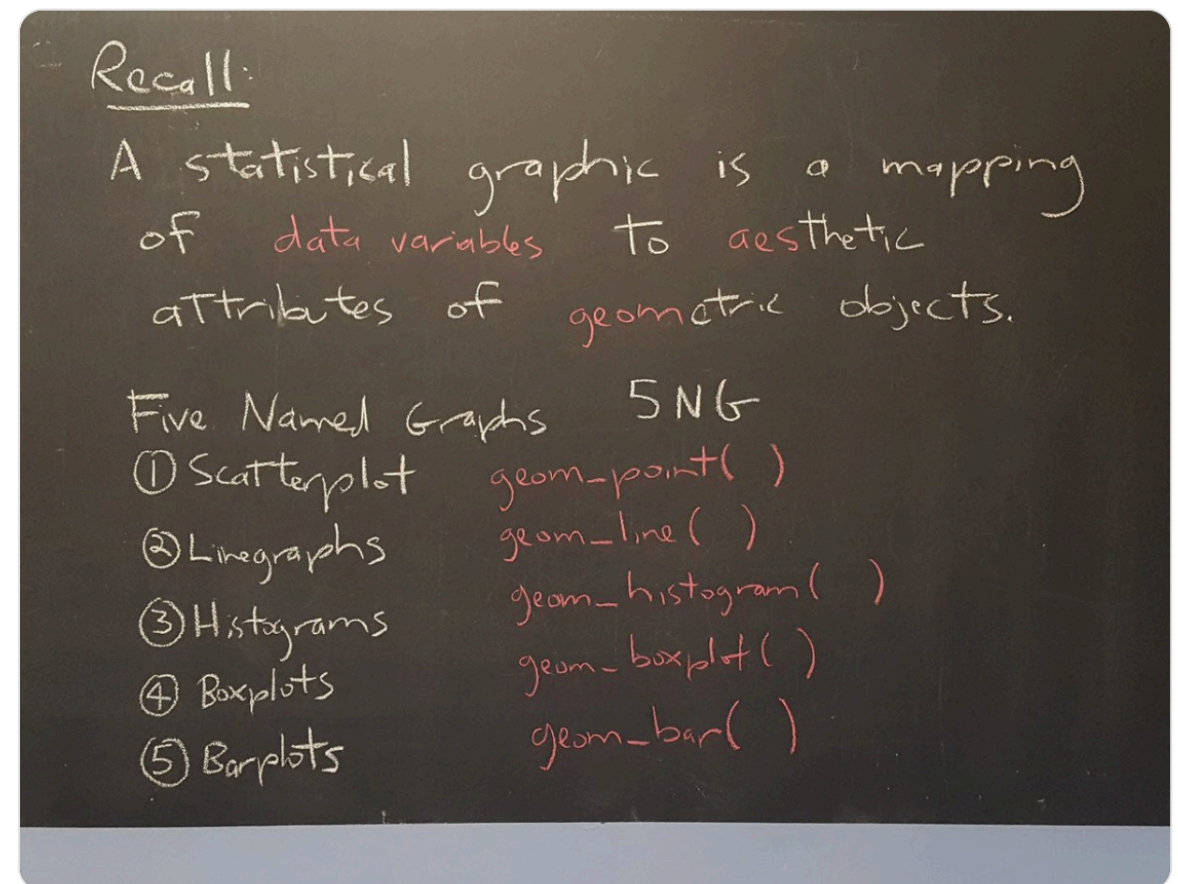 Recall:
A statistical graphic is a mapping
of data variables to aesthetic
attributes of geometric objects.
Five Named Graphs 5NG
① Scatterplot geom_point( )
② Linegraphs geom_line( )
③ Histograms geom_histogram( )
④ Boxplots geom_boxplot( )
⑤ Barplots geom_bar( )